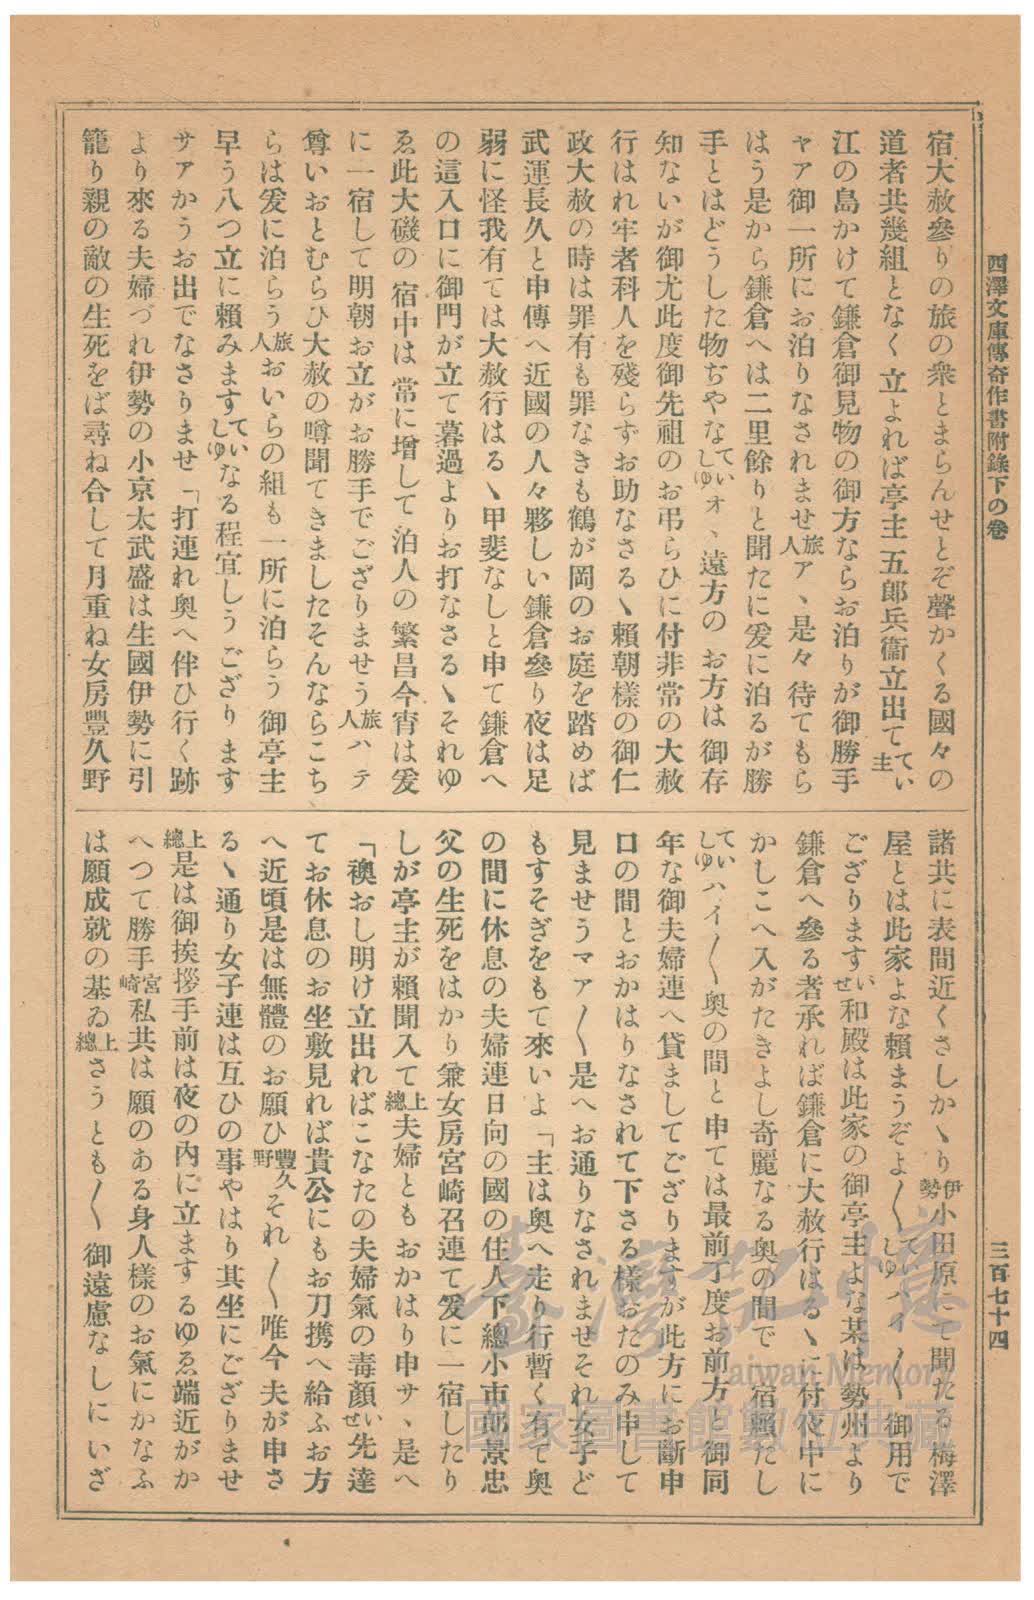 西澤文庫傳奇作書附錄下の卷
三百七十四
宿大赦參りの旅の衆とまらんせとぞ聲かくる國々の
道者共幾組となく立よれば亭主五郎兵衞立出ててい主
江の島かけて鎌倉御見物の御方ならお泊りが御勝手
ャア御一所にお泊りなされませ旅人アヽ是々待てもら
はう是から鎌倉へは二里餘りと聞たに爰に泊るが勝
手とはどうした物ぢやなていしゆォヽ遠方のお方は御存
知ないが御尤此度御先祖のお弔らひに付非常の大赦
行はれ牢者科人を殘らずお助なさるヽ賴朝樣の御仁
政大赦の時は罪有も罪なきも鶴が岡のお庭を踏めば
武運長久と申傳へ近國の人々夥しい鎌倉參り夜は足
弱に怪我有ては大赦行はるヽ甲斐なしと申て鎌倉へ
の這入口に御門が立て暮過よりお打なさるヽそれゆ
ゑ此大磯の宿中は常に增して泊人の繁昌今宵は爰
に一宿して明朝お立がお勝手でござりませう旅人ハテ
尊いおとむらひ大赦の噂聞てきましたそんならこち
らは爰に泊らう旅人おいらの組も一所に泊らう御亭主
早う八つ立に賴みますていしゆなる程宜しうござります
サアかうお出でなさりませ「打連れ奥へ伴ひ行く跡
より來る夫婦づれ伊勢の小京太武盛は生國伊勢に引
籠り親の敵の生死をば尋ね合して月重ね女房豐久野
諸共に表間近くさしかヽり伊勢小田原にて聞たる梅澤
屋とは此家よな賴まうぞよ〳〵ていしゆハイ〳〵御用で
ござりますいせ和殿は此家の御亭主よな某は勢州より
鎌倉へ參る者承れば鎌倉に大赦行はるヽに付夜中に
かしこへ入がたきよし奇麗なる奥の間で宿賴たし
ていしゆハイ〳〵奥の間と申ては最前丁度お前方と御同
年な御夫婦連へ貸ましてござりますが此方にお斷申
口の間とおかはりなされて下さる樣おたのみ申して
見ませうマア〳〵是へお通りなされませそれ女子ど
もすそぎをもて來いよ「主は奥へ走り行暫く有て奥
の間に休息の夫婦連日向の國の住人下總小市郎景忠
父の生死をはかり兼女房宮崎召連て爰に一宿したり
しが亭主が賴聞入て上總夫婦ともおかはり申サヽ是へ
「襖おし明け立出ればこなたの夫婦氣の毒顏いせ先達
てお休息のお坐敷見れば貴公にもお刀携へ給ふお方
へ近頃是は無體のお願ひ豐久野それ〳〵唯今夫が申さ
るヽ通り女子連は互ひの事やはり其坐にござりませ
上總是は御挨拶手前は夜の內に立まするゆゑ端近がか
へつて勝手宮崎私共は願のある身人樣のお氣にかなふ
は願成就の基ゐ上總さうとも〳〵御遠慮なしにいざ
臺灣記憶
Taiwan Memory
國家圖書館數位典藏